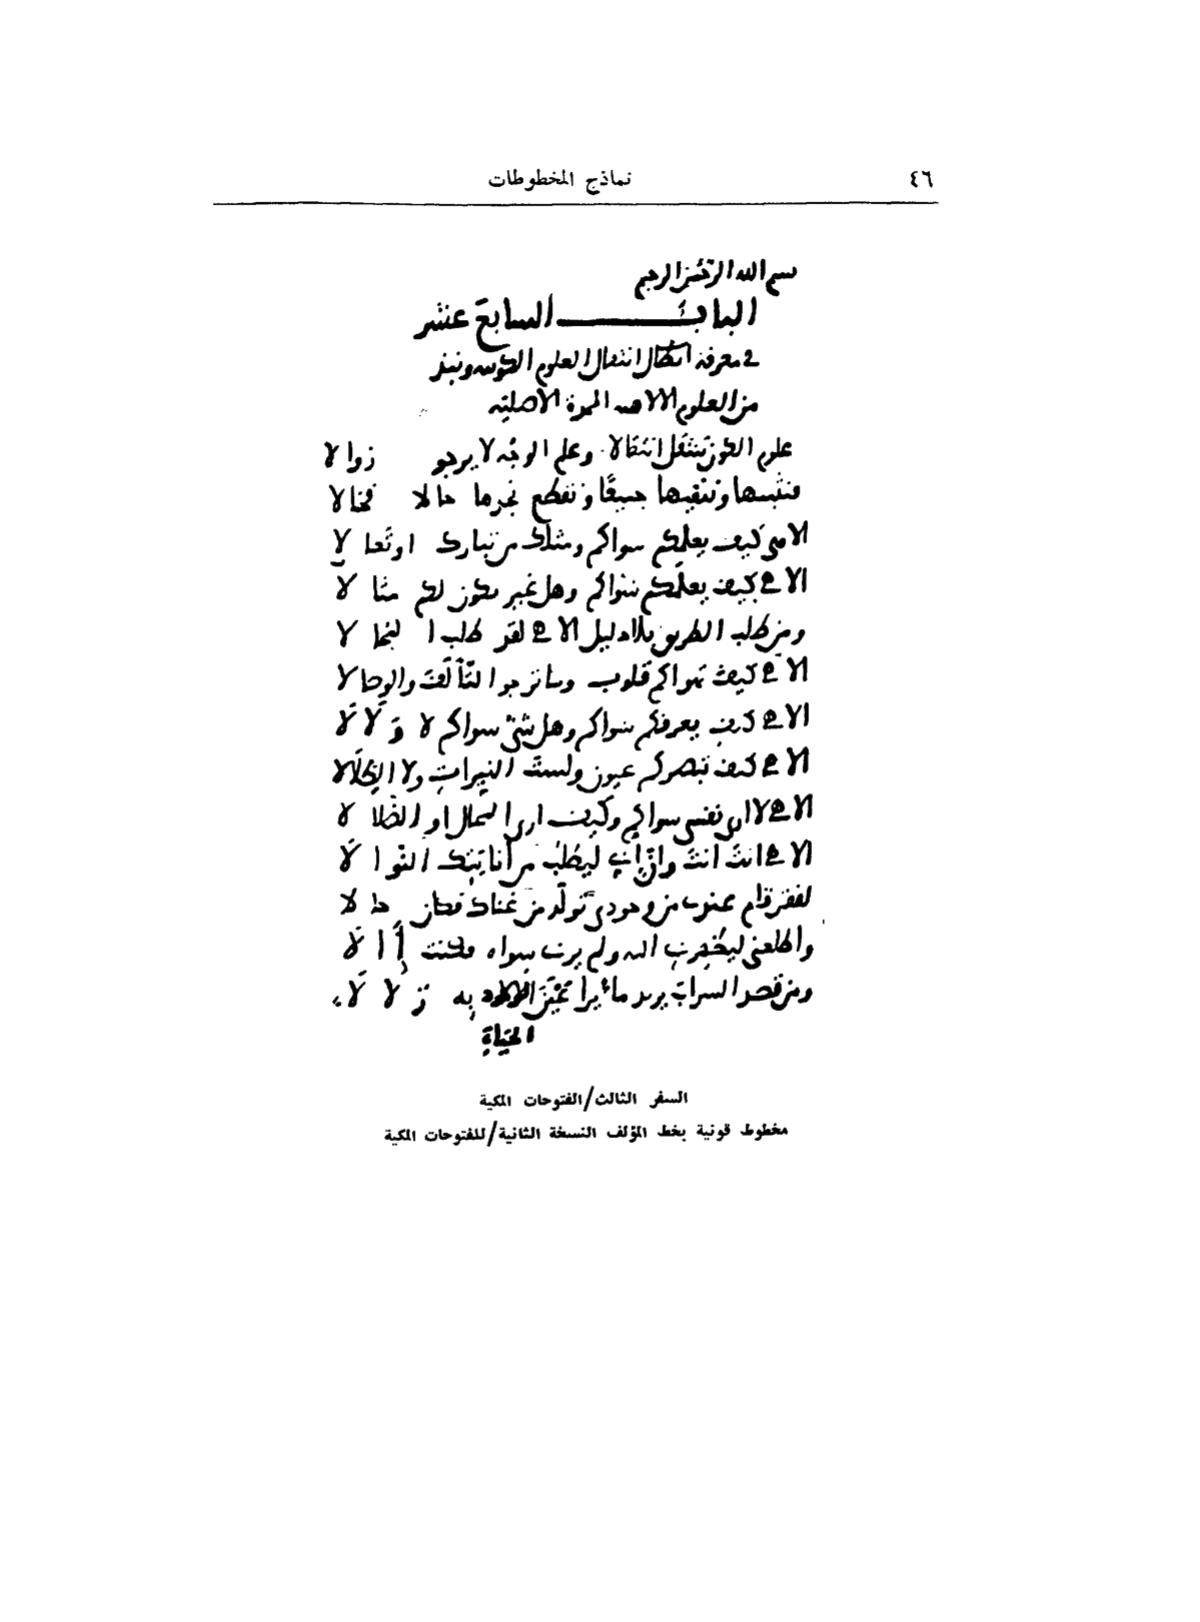 ٤٦
نماذج المخطوطات
بسم الله الرحمن الرحيم
الباب السابع عشر
في معرفة انتقال العلوم الكونية ونبذ
من العلوم الالاهية الممدة الاصلية
علوم الكون تنتقل انتقالا وعلم الوجه لا يرجو زوالا
فنثبتها وننفيها جميعًا ونقطع نجدها حالا فحالا
الاهي كيف يعلمكم سواكم ومثلك من تبارك او تعالا
الاهي كيف يعلمكم سواكم وهل غير يكون لكم مثالا
ومن طلب الطريق بلا دليل الاهي لقد طلب المحالا
الاهي كيف تهواكم قلوب وما ترجوا التألف والوصالا
الاهي كيف يعرفكم سواكم وهل شيء سواكم لا ولا لا
الاهي كيف تبصركم عيون ولست النيرات ولا الظلالا
الاهي لا ارى نفسي سواكم وكيف ارى المحال او الضلالا
الاهي انت انت وان اني ليطلب من انايتك النوالا
لفقر قام عندي من وجودي تولد من غناك فكان حالا
واطلعني ليظهرني اليه ولم يرني سواه فكنت أالا
ومن قصد السراب يريد ماء يرا عين الحياة به زلالا
الحياة
السفر الثالث/الفتوحات المكية
مخطوط قونية بخط المؤلف النسخة الثانية/للفتوحات المكية